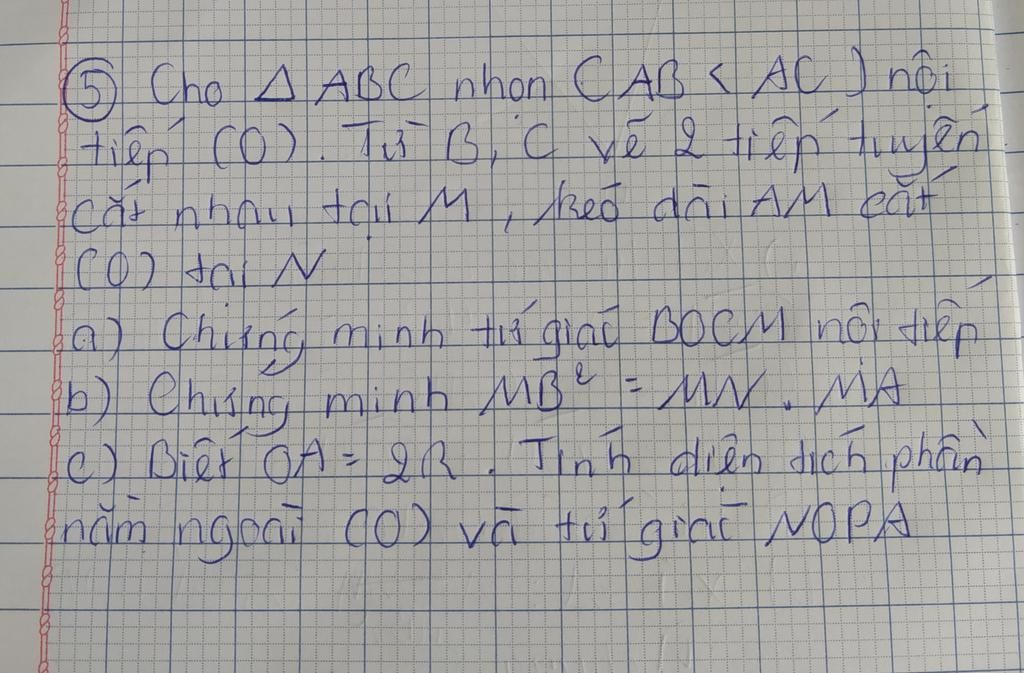 5 Cho Δ ABC nhọn (AB < AC) nội
tiếp (O). Từ B, C vẽ 2 tiếp tuyến
cắt nhau tại M, kéo dài AM cắt
(O) tại N
a) Chứng minh tứ giác BOCM nội tiếp
b) Chứng minh MB² = MN . MA
c) Biết OA = 2R. Tính diện tích phần
nằm ngoài (O) và tứ giác NOPA